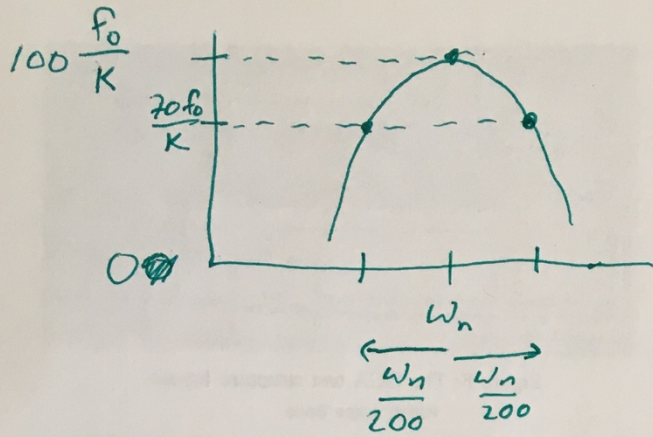 100 f₀/K
70f₀/K
0
ωn
ωn/200 ωn/200